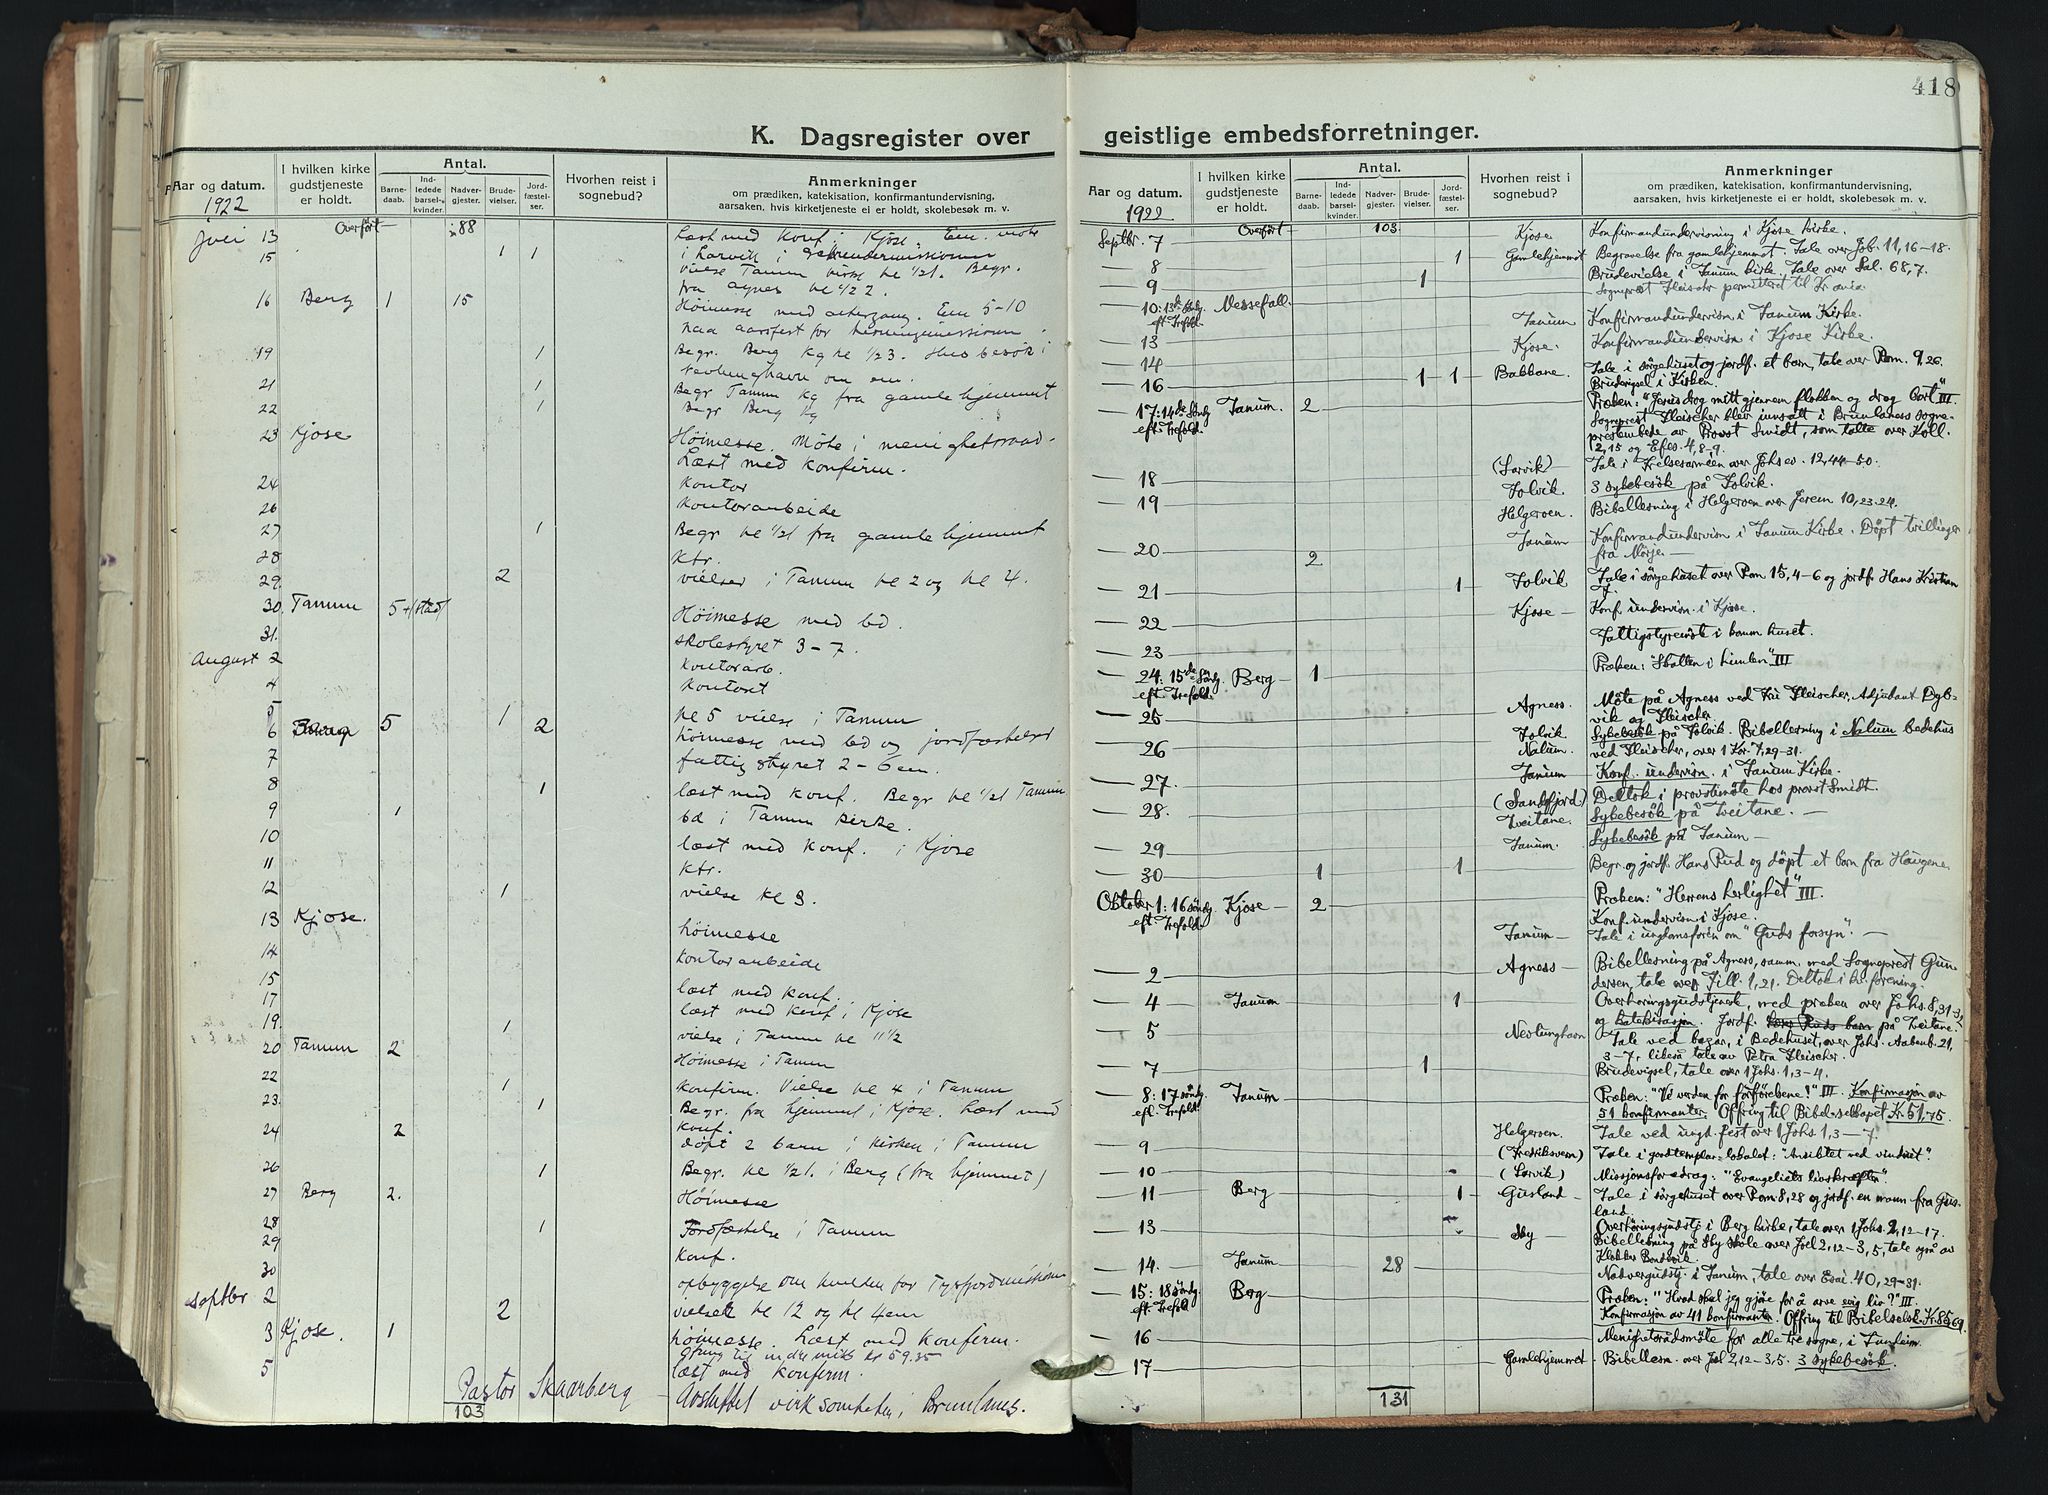 418
K. Dagsregister over geistlige embedsforretninger.
Aar og datum.
1922
I hvilken kirke gudstjeneste er holdt.
Antal.
Barnedaab.
Indledede barselkvinder.
Nadvergjester.
Brudevielser.
Jordfæstelser.
Hvorhen reist i sognebud?
Anmerkninger
om prædiken, katekisation, konfirmantundervisning,
aarsaken, hvis kirketjeneste ei er holdt, skolebesøk m. v.
Overført 88
Juli 13 Læst med Konf. i Kjose. Em. møte
i Larvik i
15 1 1 vielse Tanum kirke kl 1/21. Begr.
fra Agnes kl 1/2 2.
16 Berg 1 15 Høimesse med altergang. Em 5-10
paa aarsfest for hedningemissionen
19 1 Begr. Berg kg kl 1/23. Husbesøk i
Nevlunghavn om em.
21 1 Begr Tanum kg fra gamlehjemmet
22 1 Begr Berg kg
23 Kjose Høimesse. Møte i menighetsraad.
Læst med konfirm.
24 Kontor
26 Kontorarbeide
27 1 Begr kl 1/21 fra gamlehjemmet
28 Ktr.
29 2 vielser i Tanum kl 2 og kl 4.
30. Tanum 5+1(stad) Høimesse med bd.
31. skolestyret 3-7.
August 2 Kontorarb.
4 Kontoret
5 1 kl 5 vielse i Tanum
6 Berg 5 2 høimesse med bd og jordfæstelser
7 fattigstyret 2-6 em.
8 1 læst med konf. Begr kl 1/21 Tanum
9 1 bd i Tanum kirke.
10 læst med konf. i Kjose
11 Ktr.
12 1 vielse kl 3.
13 Kjose. høimesse
14 Kontorarbeide
15 læst med konf.
17 læst med konf. i Kjose
19. 1 vielse i Tanum kl 11 1/2
20 Tanum 2 Høimesse i Tanum
22 1 konfirm. Vielse kl 4 i Tanum
23. 1 Begr. fra hjemmet i Kjose. Læst med
konf.
24 2 døpt 2 barn i kirken i Tanum
26 1 Begr. kl 1/21. i Berg (fra hjemmet)
27 Berg 2. Høimesse
28 1 Jordfæstelse i Tanum
29 Konf.
30 opbyggelse om kvelden for Tysfjordmissionen
Septbr 2 2 vielser kl 12 og kl 4 em
3 Kjose. 1 høimesse. Læst med konfirm.
Ofring til indremis kr 59.35
5 læst med konfirm.
Pastor Skaarberg Avsluttet virksomheten i Brunlanes.
103
Aar og datum.
1922
I hvilken kirke gudstjeneste er holdt.
Antal.
Barnedaab.
Indledede barselkvinder.
Nadvergjester.
Brudevielser.
Jordfæstelser.
Hvorhen reist i sognebud?
Anmerkninger
om prædiken, katekisation, konfirmantundervisning,
aarsaken, hvis kirketjeneste ei er holdt, skolebesøk m. v.
Overført 103
Septbr. 7 Kjose. Konfirmandundervisning i Kjose kirke.
8 1 Gamlehjemmet Begravelse fra gamlehjemmet. Tale over Job. 11, 16-18.
9 1 Brudevielse i Tanum kirke. Tale over Sal. 68,7.
Sogneprest Fleischer permitteret til Kr.ania.
10: 13de Sönd. eft. Trefold. Messefall.
13 Tanum Konfirmandundervisn i Tanum Kirke.
14 Kjose. Konfirmandundervisn i Kjose Kirke.
16 1 1 Bakkane. Tale i sörgehuset og jordf. et barn, tale over Rom. 9,26.
Brudevigsel i Kirken.
17: 14de Sönd. eft. Trefold. Tanum. 2 Præken: "Jesus drog mitt gjennem flokken og drog bort" III.
Sogneprest Fleischer blev innsatt i Brunlanes sogne-
prestembede av Provst Smidt, som talte over Koll.
2,15 og Efes. 4,8-9.
18 (Larvik) Tale i Frelsesarmeen over Johs ev. 12,44-50.
19 Folvik. 3 sykebesök på Folvik.
Helgeroen. Bibellesning i Helgeroen over Jerem 10,23-24.
20 2 Tanum Konfirmandundervisn i Tanum Kirke. Döpt tvillinger
fra Mörje.
21 1 Folvik Tale i sörgehuset over Rom 15,4-6 og jordf. Hans Kristian
F.
22 Kjose Konf. undervisn. i Kjose.
23 Fattigstyremöte i komm.huset.
24: 15de Sönd. eft. Trefold. Berg 1 Præken: "Skatten i himlen" III
25 Agness. Möte på Agness ved Fru Fleischer, Adjudant Dyb-
vik og Fleischer.
26 Folvik Sykebesök på Folvik. Bibellesning i Nalum bedehus
Nalum. ved Fleischer, over 1 Kor. 7,29-31.
27. Tanum Konf. undervisn. i Tanum Kirke.
28. (Sandefjord) Deltok i provstimöte hos provst Smidt.
Tveitane. Sykebesök på Tveitane.
29 Tanum. Sykebesök på Tanum
30 1 1 Begr. og jordf. Hans Rud og döpt et barn fra Haugene
Oktober 1: 16 sönd. eft. Trefold. Kjose 2 Præken: "Herrens herlighet" III.
Konf. undervisn i Kjose.
Tanum Tale i ungdomsforen om "Guds forsyn".
2 Agness Bibellesning på Agness, samm. med Sogneprest Gun-
dersen, tale over Fill. 1,21. Deltok i kv.forening.
4 Tanum 1 Overhöringsgudstjeneste, med præken over Johs. 8,31-3
og Katekisasjon. Jordf. på Tveitane.
5 Nevlunghavn Tale ved bazar, i Bedehuset, over Johs. Aabenb. 21,
3-7, likeså tale av Petra Fleischer.
7 1 Brudevigsel, tale over 1 Johs. 1,3-4.
8: 17 sönd. eft. Trefold. Tanum Præken: "Ve verden for forförelsene!" III. Konfirmasjon av
51 konfirmanter. Offring til Bibelselskapet Kr. 51,75.
9 Helgeroen. Tale ved ungd. fest over 1 Johs. 1,3-7.
10 (Fredriksvern) Tale i godtemplar-lokalet: "Ansiktet ved vinduet".
(Larvik) Missjonsforedrag: "Evangeliets livskræfter".
11 Berg 1 Gusland Tale i sörgehuset over Rom. 8,28 og jordf. en mann fra Gus-
land.
13 Sky Overhöringsgudstj i Berg kirke, tale over 1 Johs. 2,12-17.
Bibellesning på Sky skole over Joel 2,12-3,5, tale også av
Klokker Bondevik
14. Tanum 28 Nadvergudstj. i Tanum, tale over Esai. 40,29-31.
15: 18 sönd. eft. Trefold. Berg Præken: "Hvad skal jeg gjöre for å arve evig liv?" III.
Konfirmasjon av 41 konfirmanter. Offring til Bibelselsk. Kr. 85,69.
16 Menighetsrådsmöte for alle tre sogne, i Fundeim.
17 Gamlehjemmet. Bibellesn. over Joel 2,12-3,5. 3 sykebesök.
131